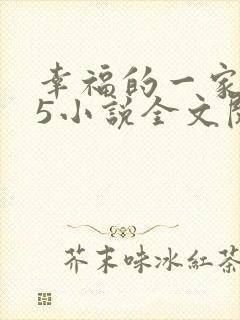 幸福的一家
5小說全文
芥末味冰紅茶